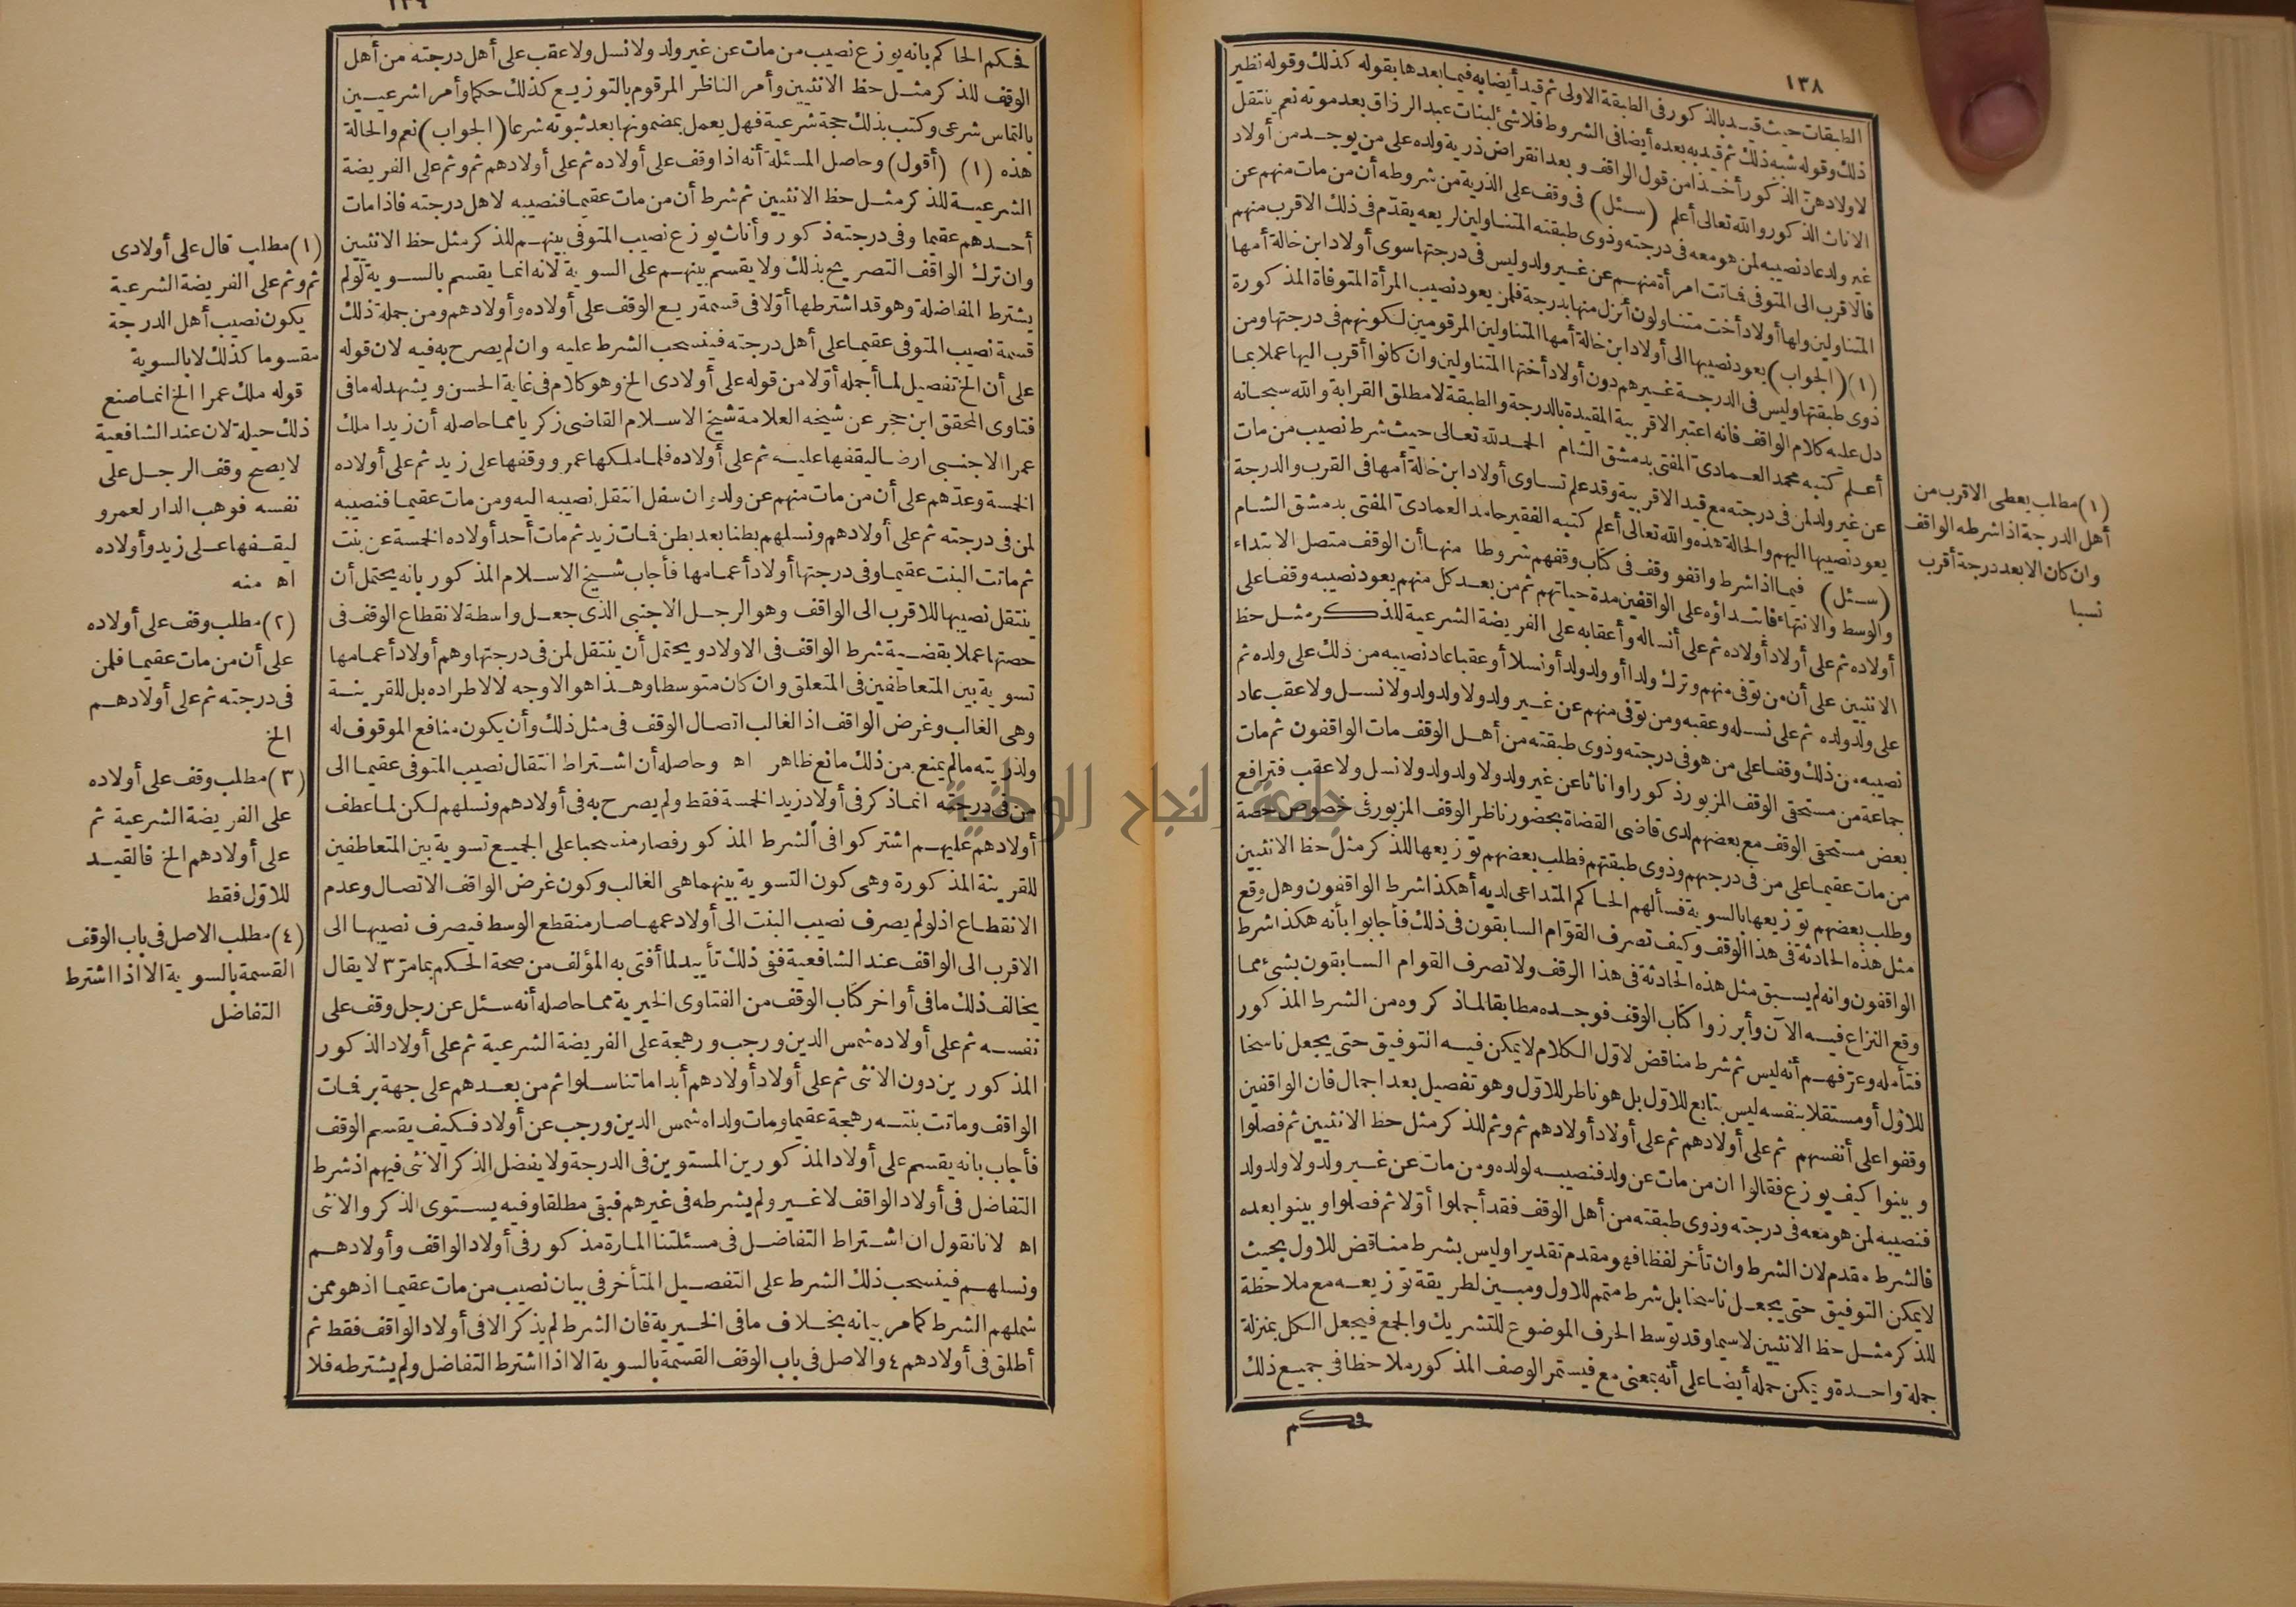 ١٣٨
الطبقات حيث قيد بالذكور في الطبقة الاولى ثم قيد أيضا به فيما بعدها بقوله كذلك وقوله نظير
ذلك وقوله شبه ذلك ثم قيد به بعده أيضا في الشروط فلا شئ لبنات عبد الرزاق بعد موته نعم ينتقل
لاولادهن الذكور أخذا من قول الواقف وبعد انقراض ذرية ولده على من يوجد من أولاد
الاناث الذكور والله تعالى أعلم (سئل) في وقف على الذرية من شروطه أن من مات منهم عن
غير ولد عاد نصيبه لمن هو معه في درجته وذوى طبقته المتناولين لريعه يقدّم في ذلك الاقرب منهم
فالاقرب الى المتوفى فماتت امرأة منهم عن غير ولد وليس في درجتها سوى أولاد ابن خالة أمها
المتناولين ولها أولاد أخت متناولون أنزل منها بدرجة فلمن يعود نصيب المرأة المتوفاة المذكورة
(١) (الجواب) يعود نصيبها الى أولاد ابن خالة أمها المتناولين المرقومين لكونهم في درجتها ومن
ذوى طبقتها وليس في الدرجة غيرهم دون أولاد أختها المتناولين وان كانوا أقرب اليها عملا بما
دل عليه كلام الواقف فانه اعتبر الاقربية المقيدة بالدرجة والطبقة لا مطلق القرابة والله سبحانه
أعلم كتبه محمد العمادى المفتى بدمشق الشام الحمد لله تعالى حيث شرط نصيب من مات
عن غير ولد لمن في درجته مع قيد الاقربية وقد علم تساوى أولاد ابن خالة أمها في القرب والدرجة
يعود نصيبها اليهم والحالة هذه والله تعالى أعلم كتبه الفقير حامد العمادى المفتى بدمشق الشام
(سئل) فيما اذا شرط واقفو وقف في كتاب وقفهم شروطا منها أن الوقف متصل الابتداء
والوسط والانتهاء فابتداؤه على الواقفين مدة حياتهم ثم من بعد كل منهم يعود نصيبه وقفا على
أولاده ثم على أولاد أولاده ثم على أنساله وأعقابه على الفريضة الشرعية للذكر مثل حظ
الانثيين على أن من توفى منهم وترك ولدا أو ولد ولد أو نسلا أو عقبا عاد نصيبه من ذلك على ولده ثم
على ولد ولده ثم على نسله وعقبه ومن توفى منهم عن غير ولد ولا ولد ولد ولا نسل ولا عقب عاد
نصيبه من ذلك وقفا على من هو في درجته وذوى طبقته من أهل الوقف مات الواقفون ثم مات
جماعة من مستحقى الوقف المزبور ذكورا واناثا عن غير ولد ولا ولد ولد ولا نسل ولا عقب فترافع
بعض مستحقى الوقف مع بعضهم لدى قاضى القضاة بحضور ناظر الوقف المزبور في خصوص حصة
من مات عقيما على من في درجتهم وذوى طبقتهم فطلب بعضهم توزيعها للذكر مثل حظ الانثيين
وطلب بعضهم توزيعها بالسوية فسألهم الحاكم المتداعى لديه أهكذا شرط الواقفون وهل وقع
مثل هذه الحادثة في هذا الوقف وكيف تصرف القوّام السابقون في ذلك فأجابوا بأنه هكذا شرط
الواقفون وانه لم يسبق مثل هذه الحادثة في هذا الوقف ولا تصرف القوام السابقون بشئ مما
وقع النزاع فيه الآن وأبرزوا كتاب الوقف فوجده مطابقا لما ذكروه من الشرط المذكور
فتأمله وعز فهم أنه ليس ثم شرط مناقض لاول الكلام لا يمكن فيه التوفيق حتى يجعل ناسخا
للاول أو مستقلا بنفسه ليس بتابع للاول بل هو ناظر للاول وهو تفصيل بعد اجمال فان الواقفين
وقفوا على أنفسهم ثم على أولادهم ثم على أولاد أولادهم ثم وثم للذكر مثل حظ الانثيين ثم فصلوا
وبينوا كيف يوزع فقالوا ان من مات عن ولد فنصيبه لولده ومن مات عن غير ولد ولا ولد ولد
فنصيبه لمن هو معه في درجته وذوى طبقته من أهل الوقف فقد أجملوا أوّلا ثم فصلوا وبينوا بعده
فالشرط مقدم لان الشرط وان تأخر لفظا فهو مقدم تقديرا وليس بشرط مناقض للاول بحيث
لا يمكن التوفيق حتى يجعل ناسخا بل شرط متمم للاول ومبين لطريقة توزيعه مع ملاحظة
للذكر مثل حظ الانثيين لا سيما وقد توسط الحرف الموضوع للتشريك والجمع فيجعل الكل بمنزلة
جملة واحدة ويمكن حمله أيضا على أنه بمعنى مع فيستمر الوصف المذكور ملاحظا في جميع ذلك
فحكم
(١) مطلب يعطى الاقرب من
أهل الدرجة اذا شرطه الواقف
وان كان الابعد درجة أقرب
نسبا
١٣٩
فحكم الحاكم بانه يوزع نصيب من مات عن غير ولد ولا نسل ولا عقب على أهل درجته من أهل
الوقف للذكر مثل حظ الانثيين وأمر الناظر المرقوم بالتوزيع كذلك حكما وأمرا شرعيين
بالتماس شرعى وكتب بذلك حجة شرعية فهل يعمل بمضمونها بعد ثبوته شرعا (الجواب) نعم والحالة
هذه (١) (أقول) وحاصل المسئلة أنه اذا وقف على أولاده ثم على أولادهم ثم وثم على الفريضة
الشرعية للذكر مثل حظ الانثيين ثم شرط أن من مات عقيما فنصيبه لاهل درجته فاذا مات
أحدهم عقيما وفى درجته ذكور وأناث يوزع نصيب المتوفى بينهم للذكر مثل حظ الانثيين
وان ترك الواقف التصريح بذلك ولا يقسم بينهم على السوية لانه انما يقسم بالسوية لو لم
يشترط المفاضلة وهو قد اشترطها أوّلا في قسمة ريع الوقف على أولاده وأولادهم ومن جملة ذلك
قسمة نصيب المتوفى عقيما على أهل درجته فينسحب الشرط عليه وان لم يصرح به فيه لان قوله
على أن الخ تفصيل لما أجمله أوّلا من قوله على أولادى الخ وهو كلام في غاية الحسن ويشهد له ما في
فتاوى المحقق ابن حجر عن شيخه العلامة شيخ الاسلام القاضى زكريا مما حاصله أن زيدا ملك
عمرا الاجنبى ارضا ليقفها عليه ثم على أولاده فلما ملكها عمرو وقفها على زيد ثم على أولاده
الخمسة وعدّهم على أن من مات منهم عن ولد وان سفل انتقل نصيبه اليه ومن مات عقيما فنصيبه
لمن في درجته ثم على أولادهم ونسلهم بطنا بعد بطن فمات زيد ثم مات أحد أولاده الخمسة عن بنت
ثم ماتت البنت عقيما وفى درجتها أولاد أعمامها فأجاب شيخ الاسلام المذكور بانه يحتمل أن
ينتقل نصيبها للاقرب الى الواقف وهو الرجل الاجنبى الذى جعل واسطة لانقطاع الوقف في
حصتها عملا بقضية شرط الواقف في الاولاد ويحتمل أن ينتقل لمن في درجتها وهم أولاد أعمامها
تسوية بين المتعاطفين في المتعلق وان كان متوسطا وهذا هو الاوجه لا لاطراده بل للقرينة
وهى الغالب وغرض الواقف اذ الغالب اتصال الوقف في مثل ذلك وأن يكون منافع الموقوف له
ولذريته ما لم يمنع من ذلك مانع ظاهر اه وحاصله أن اشتراط انتقال نصيب المتوفى عقيما الى
من في درجته انما ذكر في أولاد زيد الخمسة فقط ولم يصرح به في أولادهم ونسلهم لكن لما عطف
أولادهم عليهم اشتركوا في الشرط المذكور فصار منسحبا على الجميع تسوية بين المتعاطفين
للقرينة المذكورة وهى كون التسوية بينهما هى الغالب وكون غرض الواقف الاتصال وعدم
الانقطاع اذ لو لم يصرف نصيب البنت الى أولاد عمها صار منقطع الوسط فيصرف نصيبها الى
الاقرب الى الواقف عند الشافعية ففى ذلك تأييد لما أفتى به المؤلف من صحة الحكم بما مرّ ٣ لا يقال
يخالف ذلك ما في أواخر كتاب الوقف من الفتاوى الخيرية مما حاصله أنه سئل عن رجل وقف على
نفسه ثم على أولاده شمس الدين ورجب ورهجة على الفريضة الشرعية ثم على أولاد الذكور
المذكورين دون الانثى ثم على أولاد أولادهم أبدا ما تناسلوا ثم من بعدهم على جهة بر فمات
الواقف وماتت بنته رهجة عقيما ومات ولداه شمس الدين ورجب عن أولاد فكيف يقسم الوقف
فأجاب بانه يقسم على أولاد المذكورين المستوين في الدرجة ولا يفضل الذكر الانثى فيهم اذ شرط
التفاضل في أولاد الواقف لا غير ولم يشرطه في غيرهم فبقى مطلقا وفيه يستوى الذكر والانثى
اه لانا نقول ان اشتراط التفاضل في مسئلتنا المارة مذكور في أولاد الواقف وأولادهم
ونسلهم فينسحب ذلك الشرط على التفصيل المتأخر في بيان نصيب من مات عقيما اذ هو ممن
شملهم الشرط كما مر بيانه بخلاف ما في الخيرية فان الشرط لم يذكر الا في أولاد الواقف فقط ثم
أطلق في أولادهم ٤ والاصل في باب الوقف القسمة بالسوية الا اذا اشترط التفاضل ولم يشترطه فلا
(١) مطلب قال على أولادى
ثم وثم على الفريضة الشرعية
يكون نصيب أهل الدرجة
مقسوما كذلك لا بالسوية
قوله ملك عمرا الخ انما صنع
ذلك حيلة لان عند الشافعية
لا يصح وقف الرجل على
نفسه فوهب الدار لعمرو
ليقفها على زيد وأولاده
اه منه
(٢) مطلب وقف على أولاده
على أن من مات عقيما فلمن
في درجته ثم على أولادهم
الخ
(٣) مطلب وقف على أولاده
على الفريضة الشرعية ثم
على أولادهم الخ فالقيد
للاوّل فقط
(٤) مطلب الاصل في باب الوقف
القسمة بالسوية الا اذا اشترط
التفاضل
جامعة النجاح الوطنية